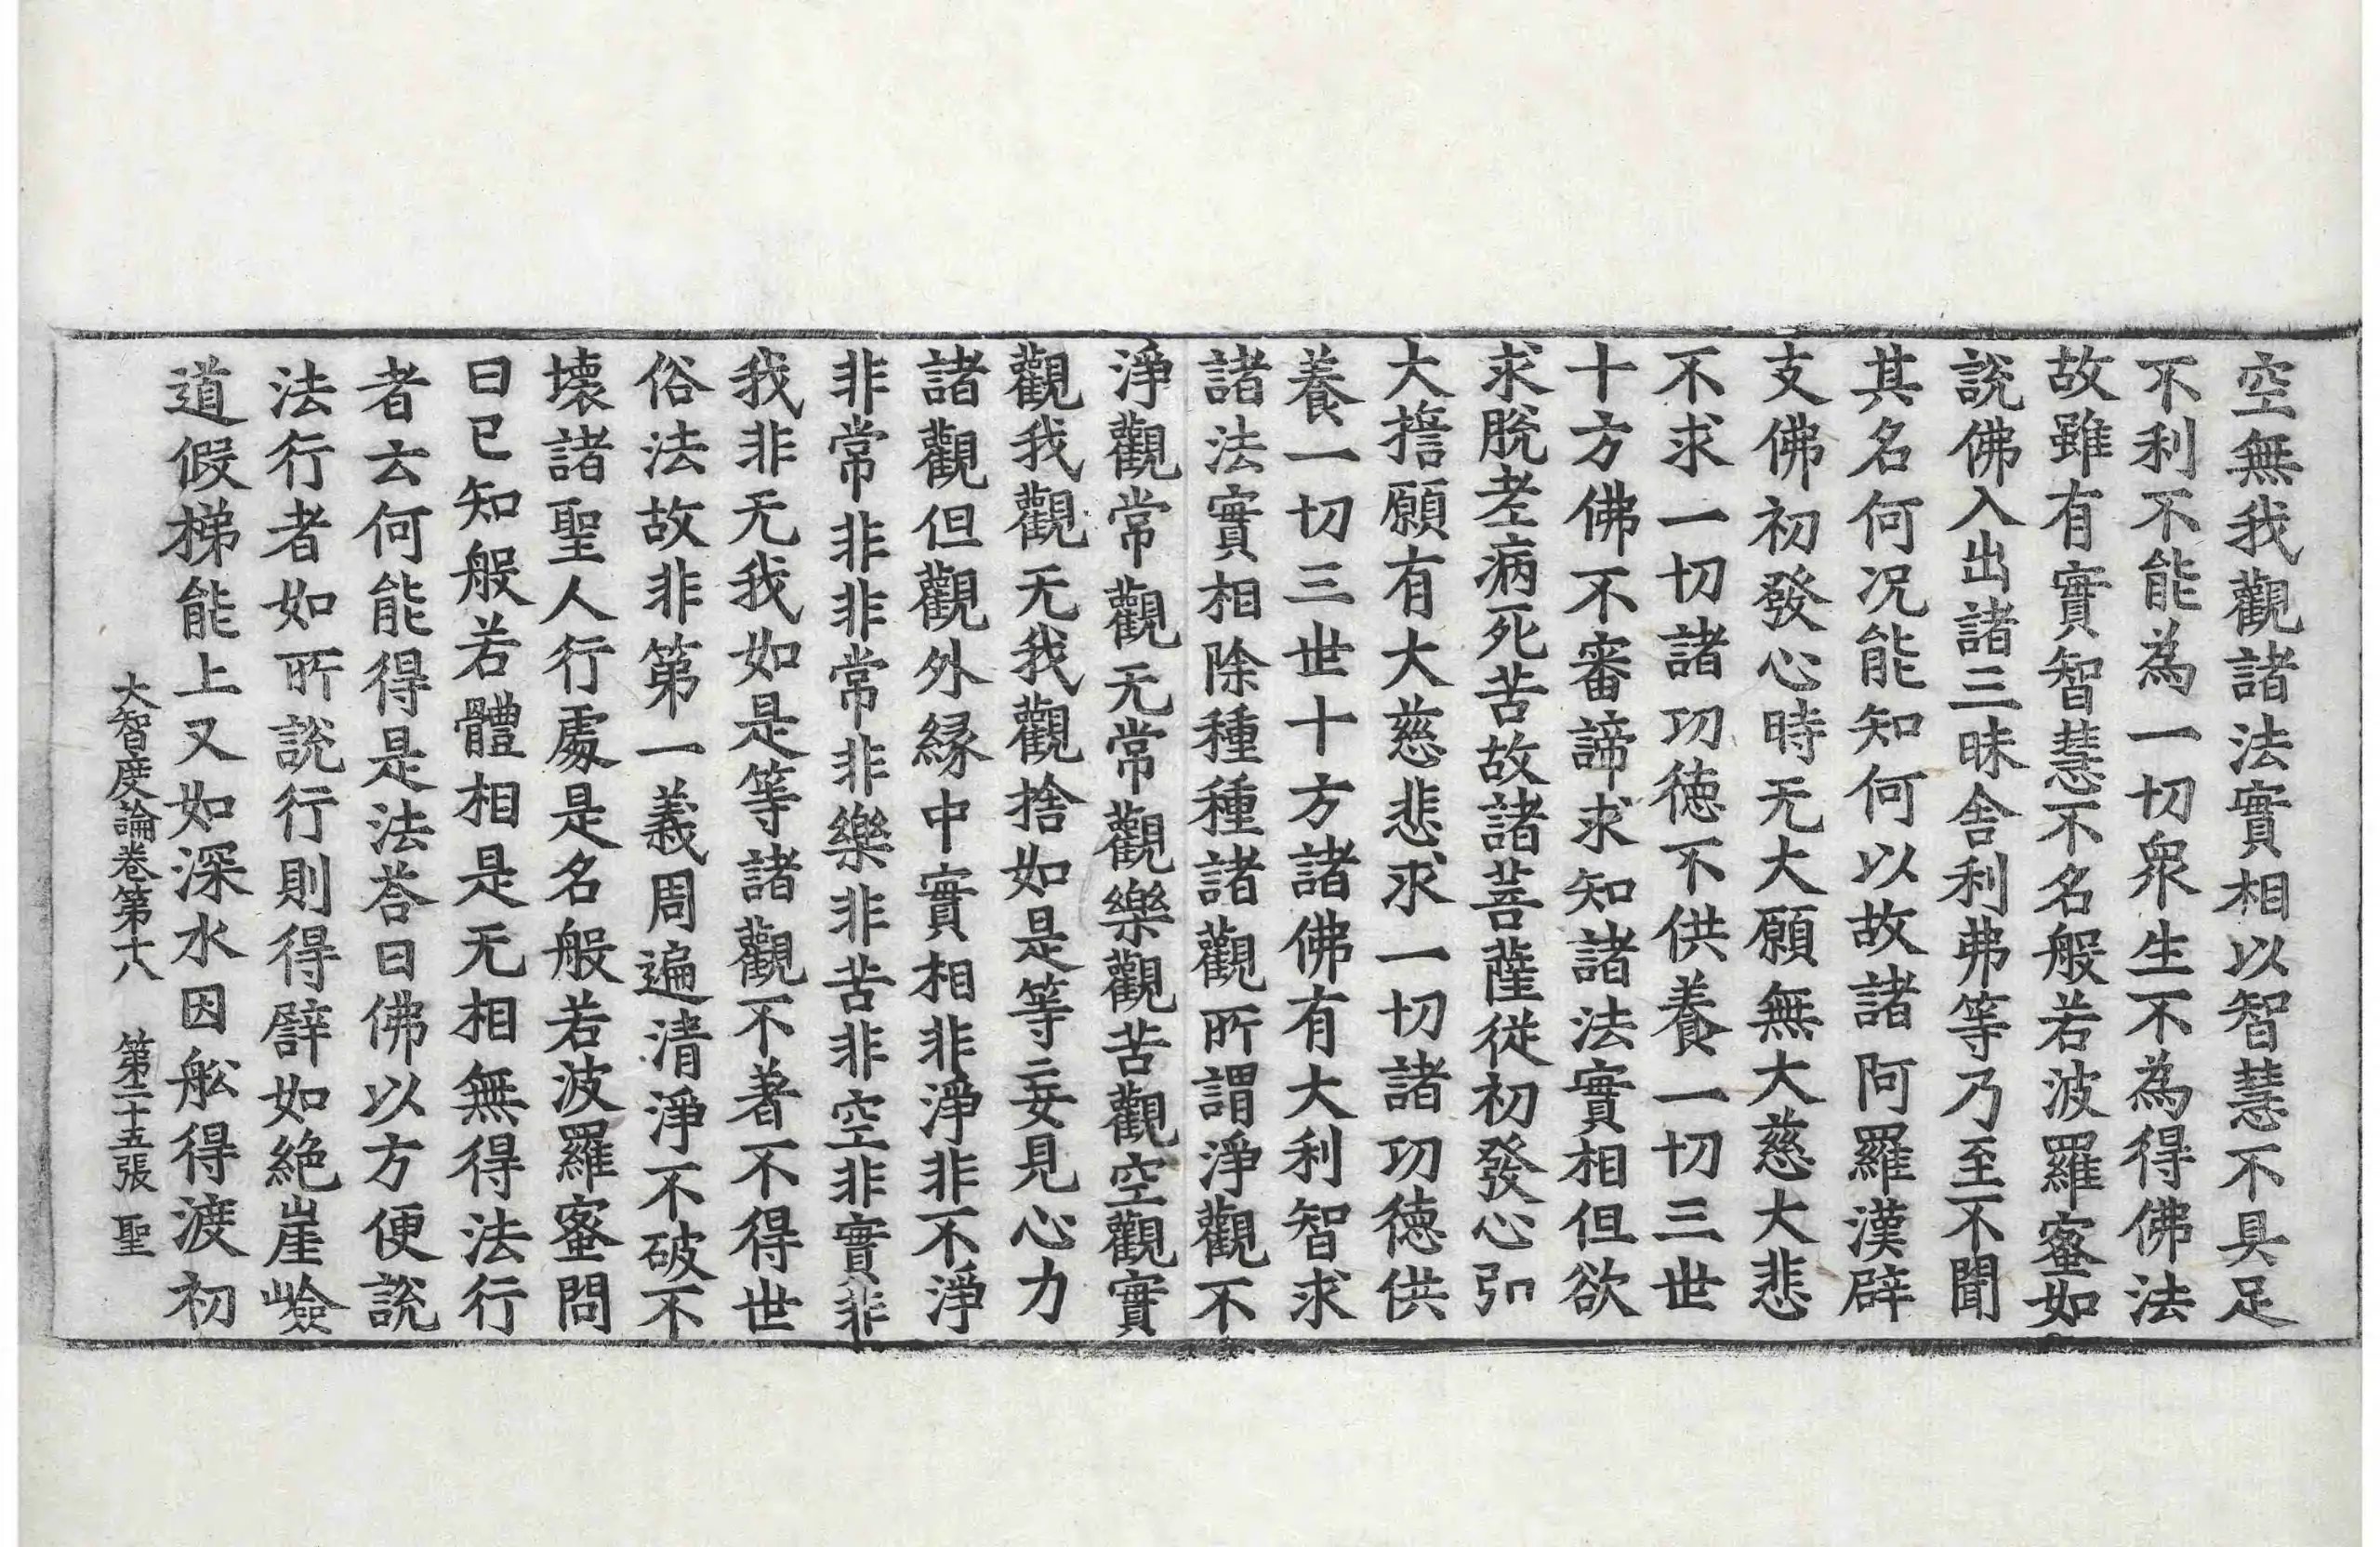 空無我觀諸法實相以智慧不具足
不利不能為一切衆生不為得佛法
故雖有實智慧不名般若波羅蜜如
說佛入出諸三昧舍利弗等乃至不聞
其名何况能知何以故諸阿羅漢辟
支佛初發心時无大願無大慈大悲
不求一切諸功德不供養一切三世
十方佛不審諦求知諸法實相但欲
求脫老病死苦故諸菩薩從初發心弘
大擔願有大慈悲求一切諸功德供
養一切三世十方諸佛有大利智求
諸法實相除種種諸觀所謂淨觀不
淨觀常觀无常觀樂觀苦觀空觀實
觀我觀无我觀捨如是等妄見心力
諸觀但觀外縁中實相非淨非不淨
非常非非常非樂非苦非空非實非
我非无我如是等諸觀不著不得世
俗法故非第一義周遍清淨不破不
壞諸聖人行處是名般若波羅蜜問
曰已知般若體相是无相無得法行
者云何能得是法荅曰佛以方便說
法行者如所說行則得譬如絶崖嶮
道假梯能上又如深水因舩得渡初
大智度論卷第十八 第二十五張 聖